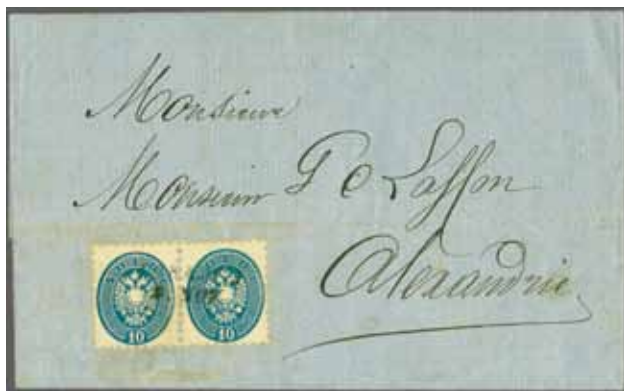 Monsieur
Monsieur G C Lasson
Alexandrie
10 10